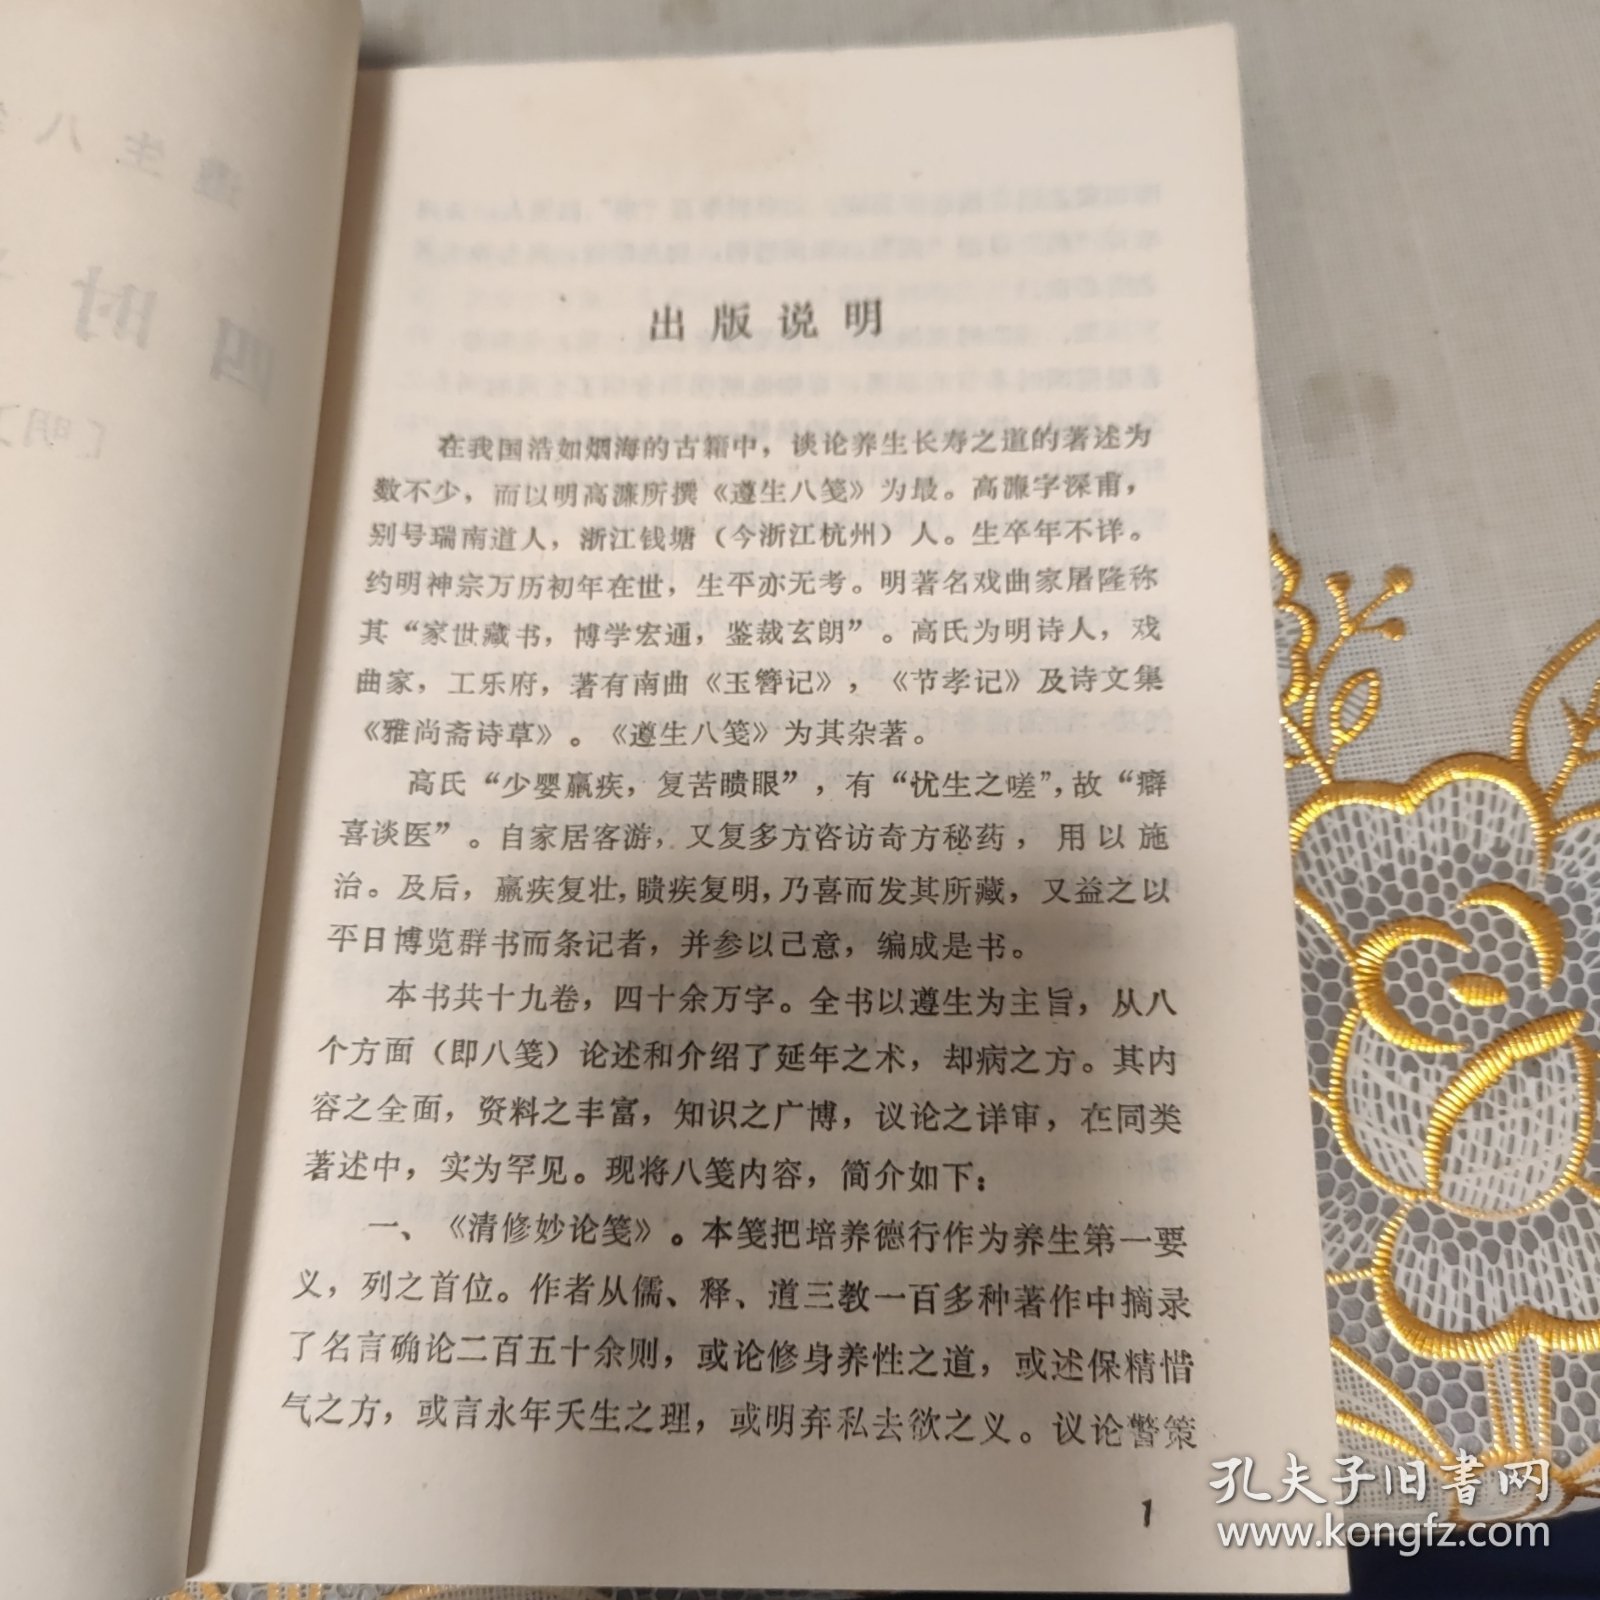 出版说明
在我国浩如烟海的古籍中，谈论养生长寿之道的著述为
数不少，而以明高濂所撰《遵生八笺》为最。高濂字深甫，
别号瑞南道人，浙江钱塘（今浙江杭州）人。生卒年不详。
约明神宗万历初年在世，生平亦无考。明著名戏曲家屠隆称
其“家世藏书，博学宏通，鉴裁玄朗”。高氏为明诗人，戏
曲家，工乐府，著有南曲《玉簪记》，《节孝记》及诗文集
《雅尚斋诗草》。《遵生八笺》为其杂著。
高氏“少婴羸疾，复苦瞆眼”，有“忧生之嗟”，故“癖
喜谈医”。自家居客游，又复多方咨访奇方秘药，用以施
治。及后，羸疾复壮，瞆疾复明，乃喜而发其所藏，又益之以
平日博览群书而条记者，并参以己意，编成是书。
本书共十九卷，四十余万字。全书以遵生为主旨，从八
个方面（即八笺）论述和介绍了延年之术，却病之方。其内
容之全面，资料之丰富，知识之广博，议论之详审，在同类
著述中，实为罕见。现将八笺内容，简介如下：
一、《清修妙论笺》。本笺把培养德行作为养生第一要
义，列之首位。作者从儒、释、道三教一百多种著作中摘录
了名言确论二百五十余则，或论修身养性之道，或述保精惜
气之方，或言永年夭生之理，或明弃私去欲之义。议论警策
1
孔夫子旧书网
www.kongfz.com